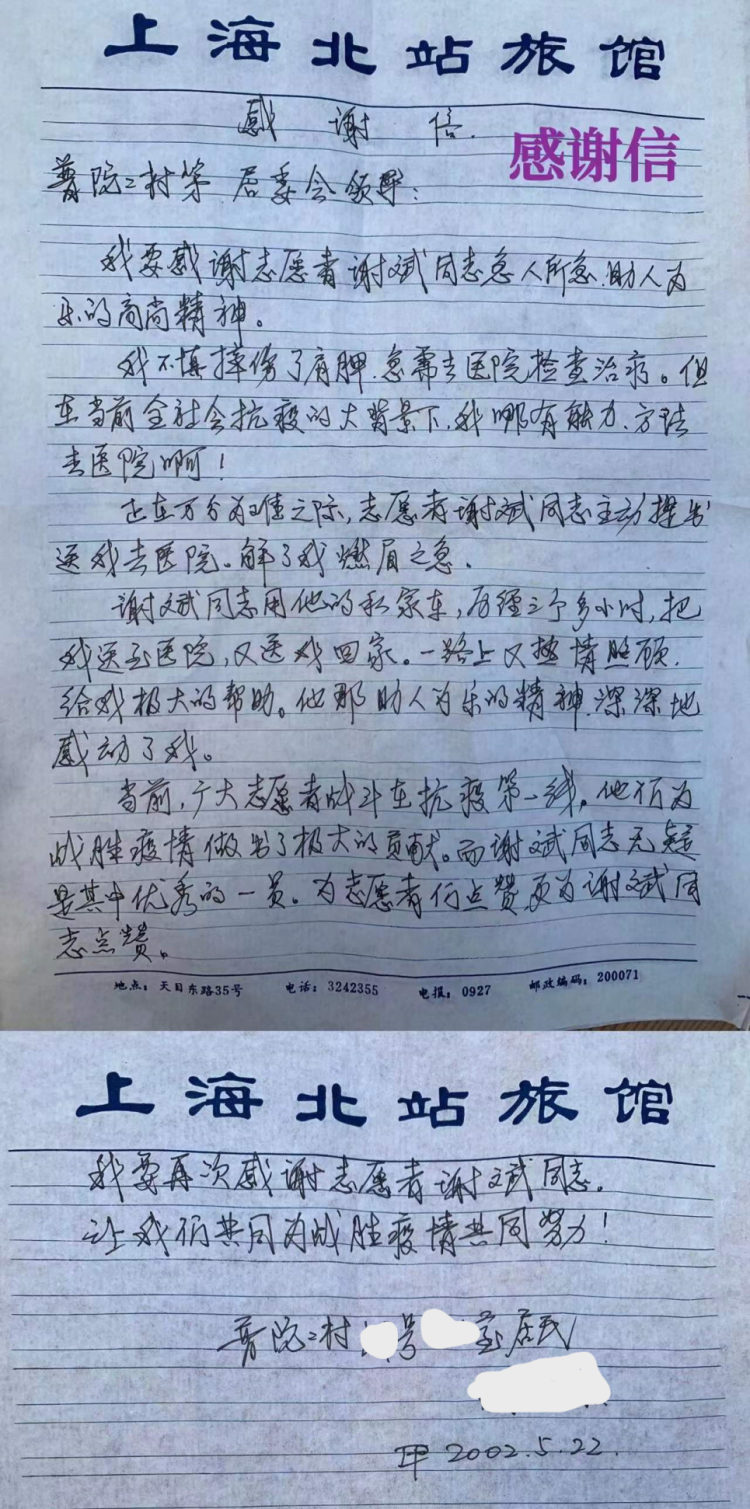 上海北站旅馆
感 谢 信.
感谢信
普院二村第 居委会领导：
我要感谢志愿者谢斌同志急人所急、助人为
乐的高尚精神。
我不慎摔伤了肩胛.急需去医院检查治疗。但
在当前全社会抗疫的大背景下,我哪有能力、方法
去医院啊！
正在万分为难之际,志愿者谢斌同志主动提出
送我去医院。解了我燃眉之急.
谢斌同志用他的私家车,历经三个多小时,把
我送至医院,又送我回家。一路上又热情照顾.
给我极大的帮助。他那助人为乐的精神.深深地
感动了我。
当前,广大志愿者战斗在抗疫第一线。他们为
战胜疫情做出了极大的贡献。而谢斌同志无疑
是其中优秀的一员。为志愿者们点赞,更为谢斌同
志点赞。
地点：天目东路35号 电话：3242355 电报：0927 邮政编码：200071
上海北站旅馆
我要再次感谢志愿者谢斌同志.
让我们共同为战胜疫情共同努力！
普院二村 号 室居民
2002.5.22.